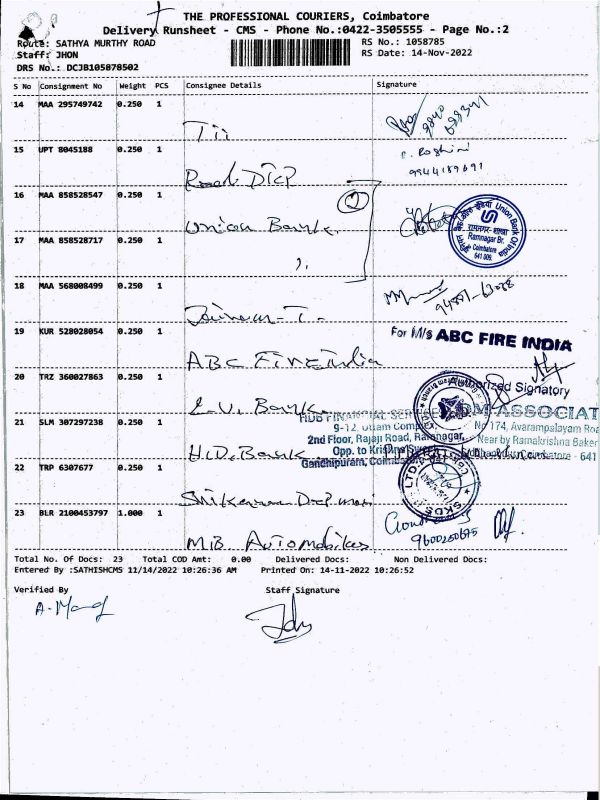 THE PROFESSIONAL COURIERS, Coimbatore
Delivery Runsheet - CMS - Phone No.:0422-3505555 - Page No.:2
Route: SATHYA MURTHY ROAD
RS No.: 1058785
Staff: JHON
RS Date: 14-Nov-2022
DRS No.: DCJB105878502
S No Consignment No Weight PCS Consignee Details Signature
14 MAA 295749742 0.250 1
Tii
15 UPT 8045188 0.250 1
9944189691
Road DTCP
16 MAA 858528547 0.250 1
2
Union Bank.
17 MAA 858528717 0.250 1
यूनियन बैंक ऑफ इंडिया Union Bank Of India
रामनगर - शाखा
Ramnagar Br.
Coimbatore
641 009.
18 MAA 568008499 0.250 1
19 KUR 528028054 0.250 1
For M/s ABC FIRE INDIA
ABC Fire India
Authorized Signatory
20 TRZ 360027863 0.250 1
Bank
HUB FINANCIAL SERVICES
ASSOCIAT
21 SLM 307297238 0.250 1
9-12, Uttam Complex,
No 174, Avarampalayam Roa
2nd Floor, Rajaji Road, Ramnagar,
Near by Ramakrishna Baker
Bank
Opp. to Krishna Sweets
Coimbatore - 641
22 TRP 6307677 0.250 1
Gandhipuram, Coimbatore
SKDS LTD
23 BLR 2100453797 1.000 1
9600250675
MB Automobiles
Total No. Of Docs: 23 Total COD Amt: 0.00 Delivered Docs: Non Delivered Docs:
Entered By :SATHISHCMS 11/14/2022 10:26:36 AM Printed On: 14-11-2022 10:26:52
Verified By Staff Signature